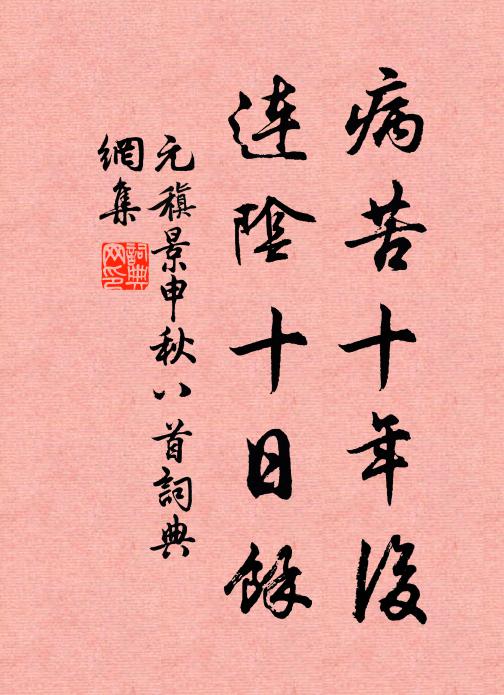 病苦十年後
連陰十日餘
元稹景申秋八首詞典
網集
詞典
网印